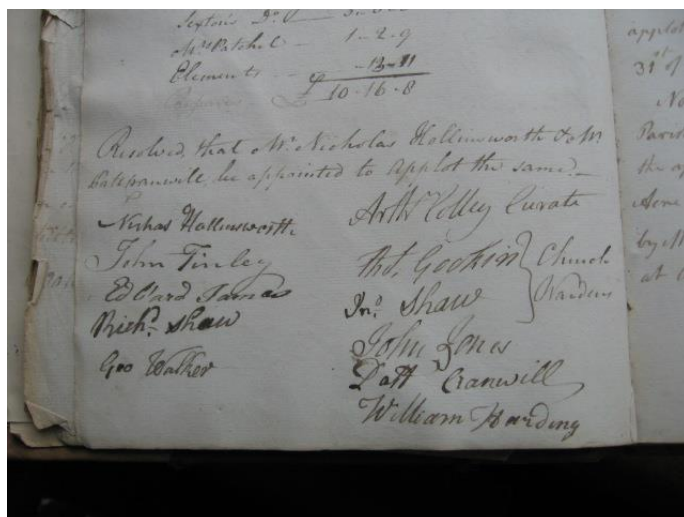 Sexton's Do
Mrs Pitchel - 1 - 2 - 9
Elements - 13 - 11
£ 10 - 16 - 8
Resolved, that Mr. Nicholas Hollinsworth & Mr
be appointed to Applot the same.
Nichas Hollinsworth
John Finley
Edward James
Richd. Shaw
Geo Walker
Arthr Colley Curate
Thos. Gookin
Jno. Shaw
Church
Wardens
John Jones
Patt Cranwill
William Harding
applot
31st of
No
Paris
the ap
Acre
by M
at